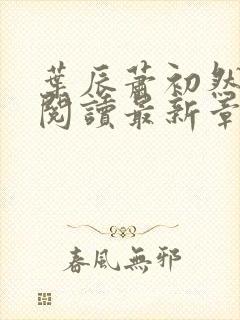 葉辰蕭初然
閱讀最新章
春風無邪